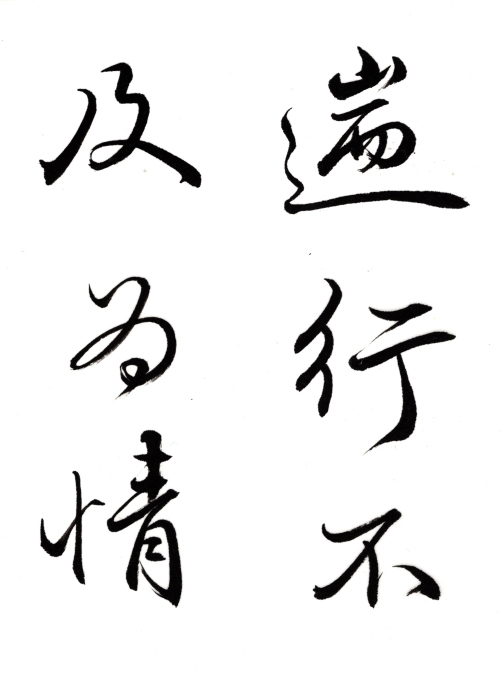 遄行不
及為情